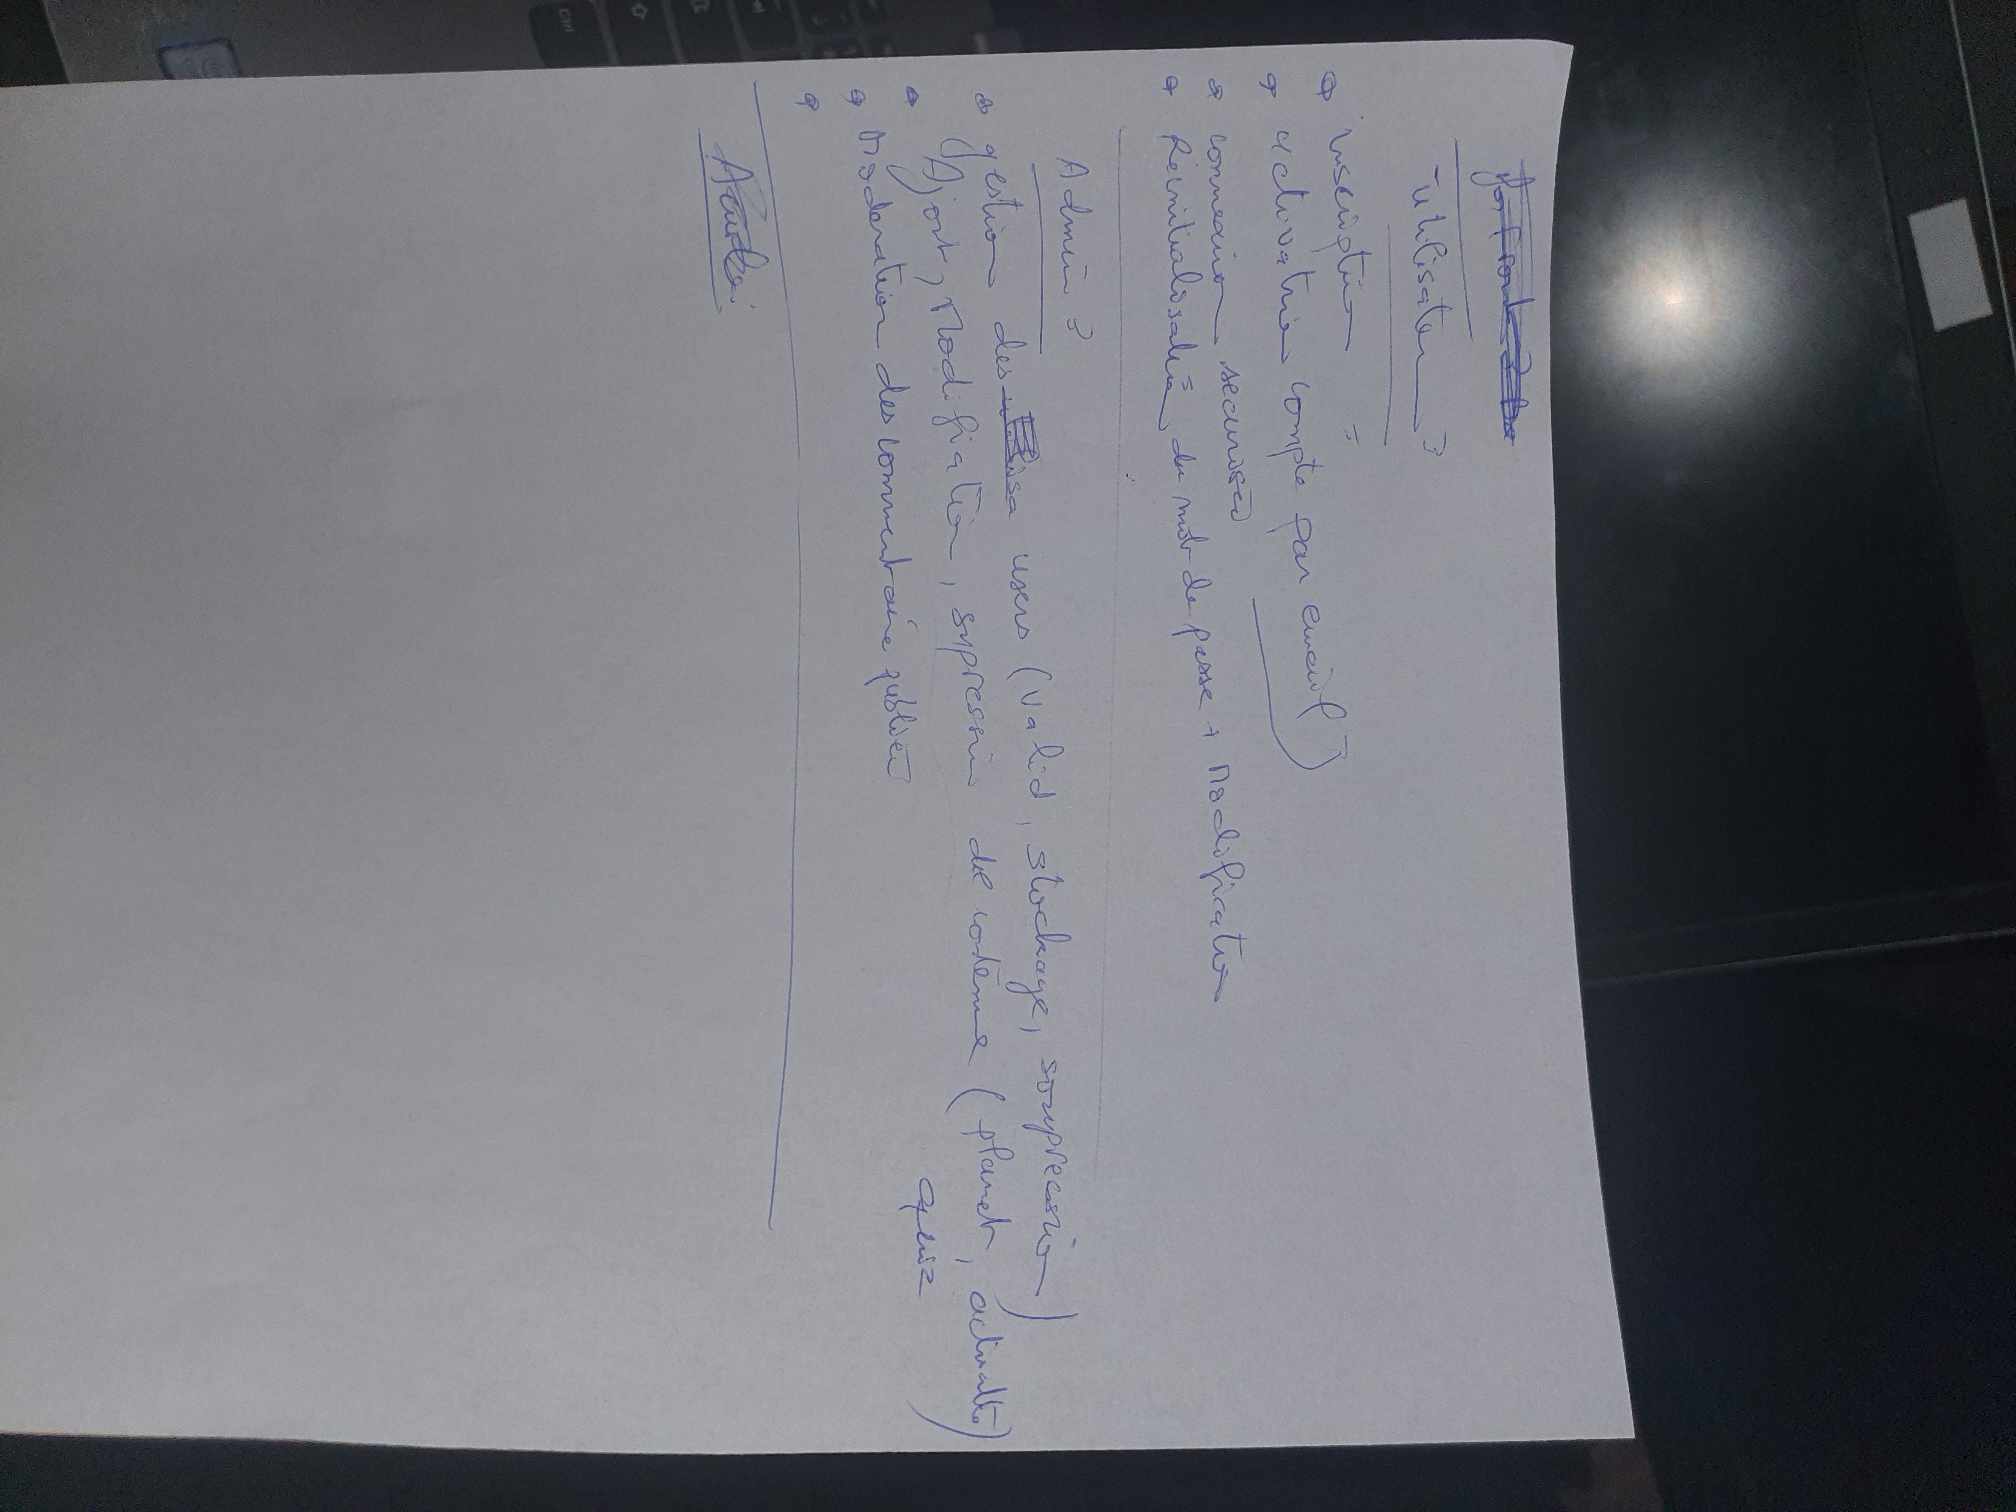 - utilisateur :
inscription =
activation compte par email)
connexion securisée
Reinitialisation du mot de passe + Modification
Admin :
gestion des users (valid, stockage, suppression)
Ajout, Modification, supression de contenue (planet, actualité
quiz)
Moderation des commentaire publier
Ctrl